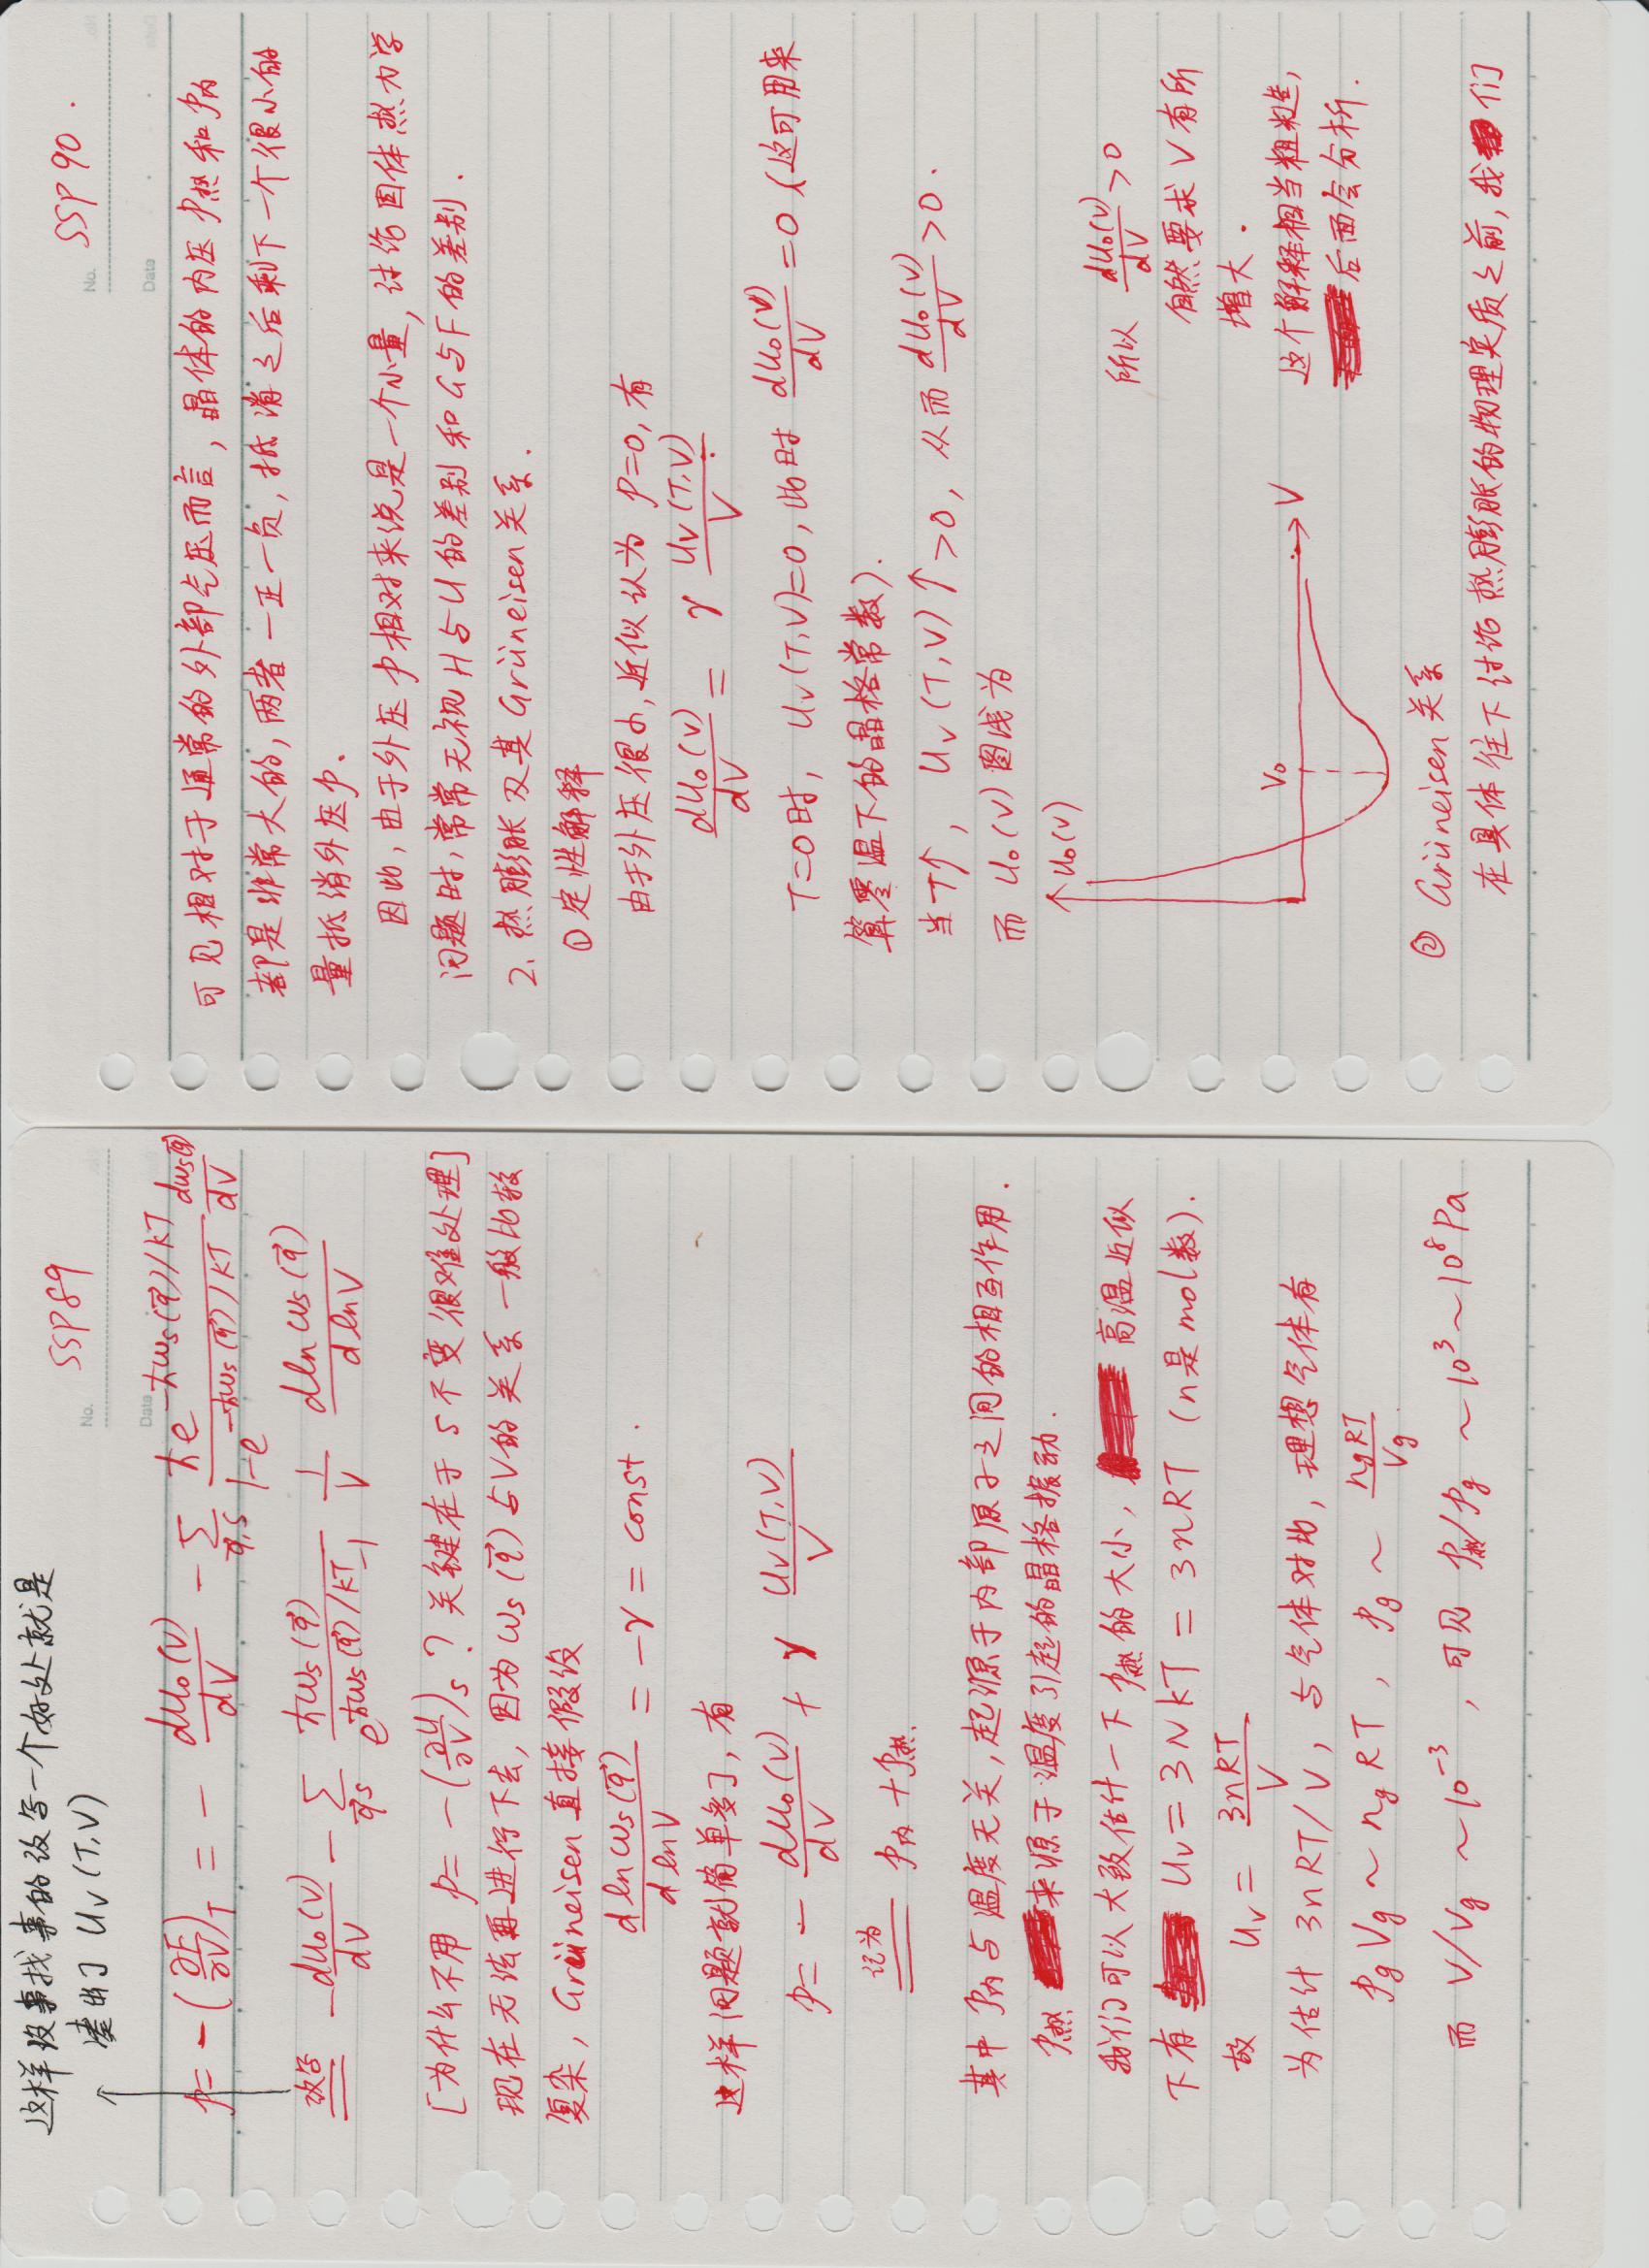 这样没事找事的改写一个好处就是
凑出了 U_V(T,V)
No. SSP89
Date
p = -(∂F/∂V)_T = - dU₀(V)/dV - Σ_{q⃗,s} ħe^{-ħω_s(q⃗)/kT}/(1-e^{-ħω_s(q⃗)/kT}) dω_s(q⃗)/dV
改写
= -dU₀(V)/dV - Σ_{q⃗s} ħω_s(q⃗)/(e^{ħω_s(q⃗)/kT}-1) 1/V dlnω_s(q⃗)/dlnV
[为什么不用 p = -(∂U/∂V)_S ? 关键在于 S 不变很难处理]
现在无法再进行下去, 因为 ω_s(q⃗) 与V的关系一般比较
复杂, Grüneisen 直接假设
dlnω_s(q⃗)/dlnV = -γ = const.
这样问题就简单多了, 有
p = - dU₀(V)/dV + γ U_V(T,V)/V
记为
= p内 + p热.
其中 p内 与温度无关, 起源于内部原子之间的相互作用.
p热 来源于温度引起的晶格振动.
我们可以大致估计一下 p热 的大小, 高温近似
下有 U_V = 3NkT = 3nRT (n是mol数).
故 U_V = 3nRT/V
为估计 3nRT/V, 与气体对比, 理想气体有
p_g V_g ~ n_g RT, p_g ~ n_g RT/V_g.
而 V/V_g ~ 10⁻³, 可见 p热/p_g ~ 10³ ~ 10⁸ Pa
No. SSP 90.
Date
可见相对于通常的外部气压而言, 晶体的内压 p热 和 p内
都是非常大的, 两者一正一负, 抵消之后剩下一个很小的
量抵消外压 p.
因此, 由于外压 p 相对来说是一个小量, 讨论固体热力学
问题时, 常常无视 H与U 的差别和 G与F 的差别.
2. 热膨胀及其 Grüneisen 关系.
① 定性解释
由于外压很小, 近似认为 p=0, 有
dU₀(V)/dV = γ U_V(T,V)/V.
T=0时, U_V(T,V)=0, 此时 dU₀(V)/dV = 0 (这可用来
算零温下的晶格常数).
当T↑, U_V(T,V)↑>0, 从而 dU₀(V)/dV > 0.
而 U₀(V) 图线为
U₀(V)
V₀
V
所以 dU₀(V)/dV > 0
自然要求 V 有所
增大.
这个解释相当粗糙,
后面会分析.
② Grüneisen 关系
在具体往下讨论热膨胀的物理实质之前, 我们